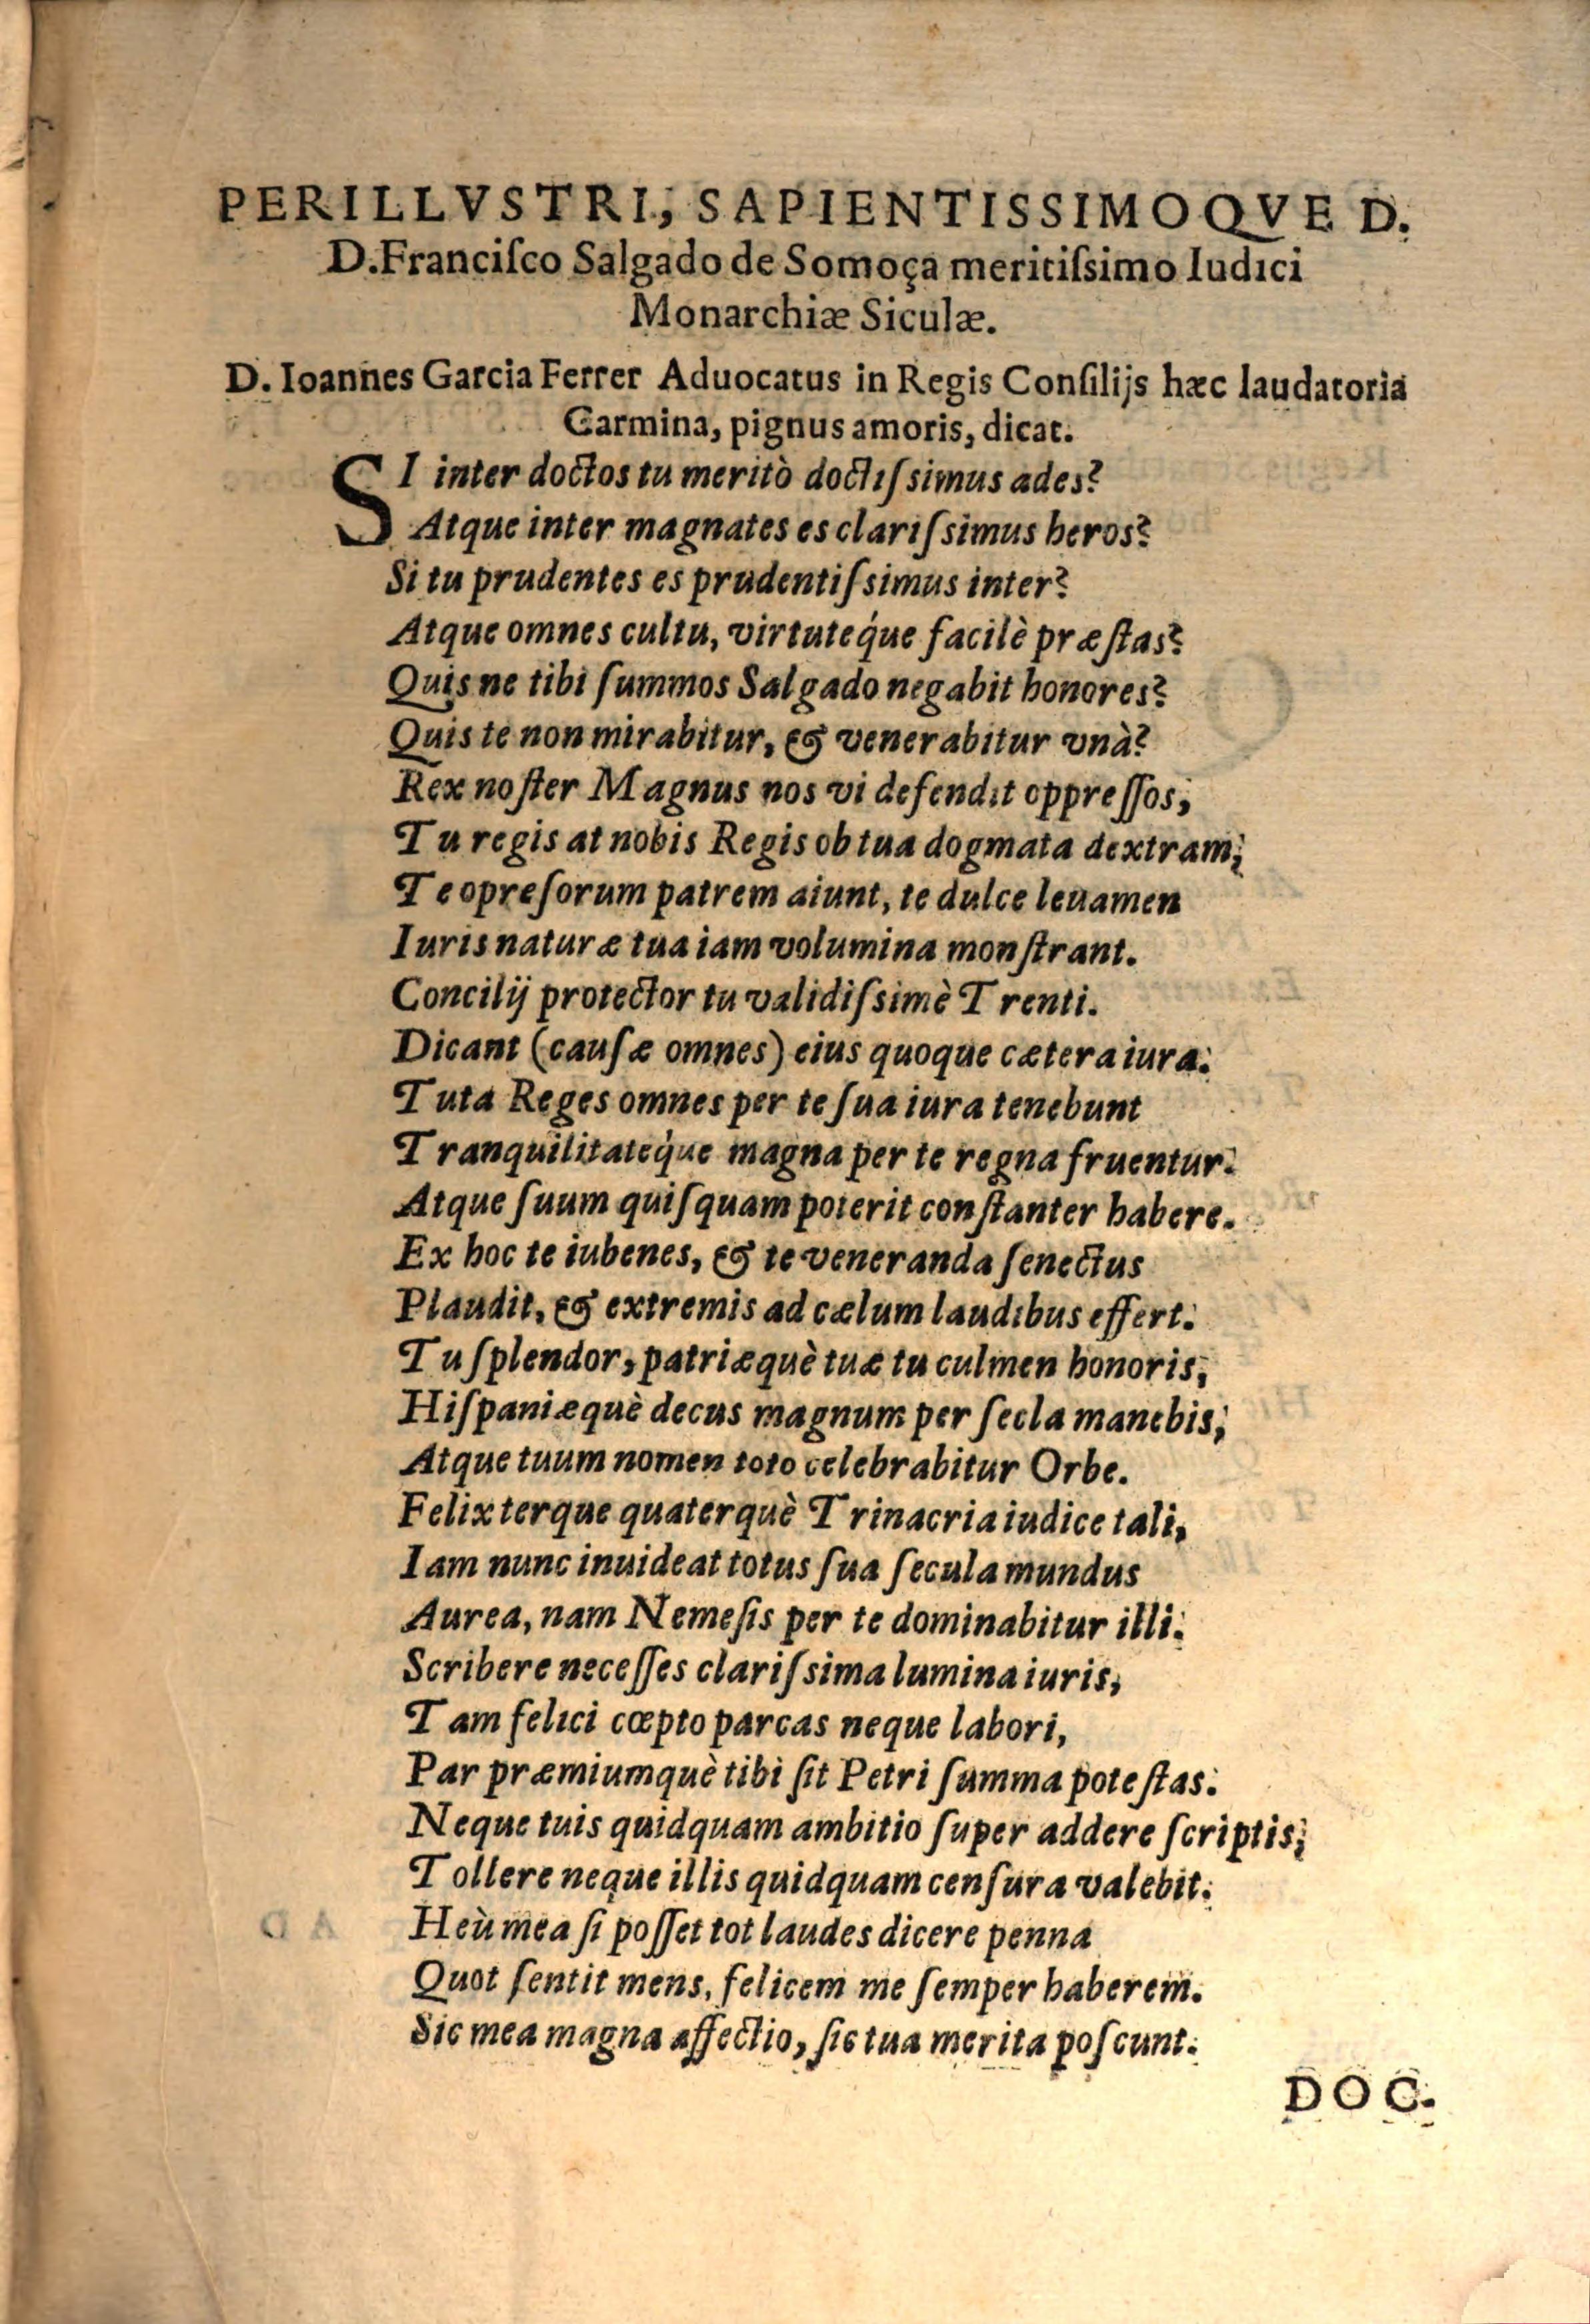 PERILLVSTRI, SAPIENTISSIMOQVE D.
D.Franciſco Salgado de Somoça meritiſsimo Iudici
Monarchiæ Siculæ.
D. Ioannes Garcia Ferrer Aduocatus in Regis Conſilijs hæc laudatoria
Carmina, pignus amoris, dicat.
SI inter doctos tu meritò doctiſsimus ades?
Atque inter magnates es clariſsimus heros?
Si tu prudentes es prudentiſsimus inter?
Atque omnes cultu, virtuteq́ue facilè præſtas?
Quis ne tibi ſummos Salgado negabit honores?
Quis te non mirabitur, & venerabitur vnà?
Rex noſter Magnus nos vi defendit oppreſſos,
Tu regis at nobis Regis ob tua dogmata dextram;
Te opreſorum patrem aiunt, te dulce leuamen
Iuris naturæ tua iam volumina monſtrant.
Concilij protector tu validiſsimè Trenti.
Dicant (cauſæ omnes) eius quoque cætera iura.
Tuta Reges omnes per te ſua iura tenebunt
Tranquilitateq́ue magna per te regna fruentur.
Atque ſuum quiſquam poterit conſtanter habere.
Ex hoc te iubenes, & te veneranda ſenectus
Plaudit, & extremis ad cælum laudibus effert.
Tu ſplendor, patriæquè tuæ tu culmen honoris,
Hiſpaniæquè decus magnum per ſecla manebis,
Atque tuum nomen toto celebrabitur Orbe.
Felix terque quaterquè Trinacria iudice tali,
Iam nunc inuideat totus ſua ſecula mundus
Aurea, nam Nemeſis per te dominabitur illi.
Scribere neceſſes clariſsima lumina iuris,
Tam felici cœpto parcas neque labori,
Par præmiumquè tibi ſit Petri ſumma poteſtas.
Neque tuis quidquam ambitio ſuper addere ſcriptis;
Tollere neque illis quidquam cenſura valebit.
Heù mea ſi poſſet tot laudes dicere penna
Quot ſentit mens, felicem me ſemper haberem.
Sic mea magna affectio, ſic tua merita poſcunt.
DOC.